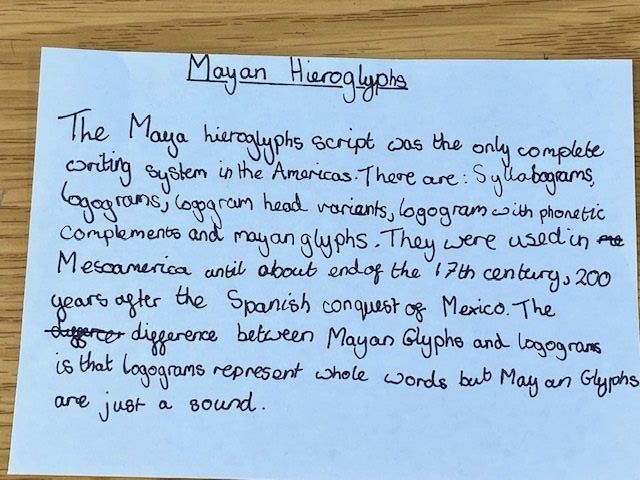 Mayan Hieroglyphs
The Maya hieroglyphs script was the only complete
writing system in the Americas. There are: Syllabograms,
logograms, logogram head variants, logogram with phonetic
complements and mayan glyphs. They were used in
Mesoamerica until about end of the 17th century, 200
years after the Spanish conquest of Mexico. The
difference between Mayan Glyphs and logograms
is that logograms represent whole words but Mayan Glyphs
are just a sound.